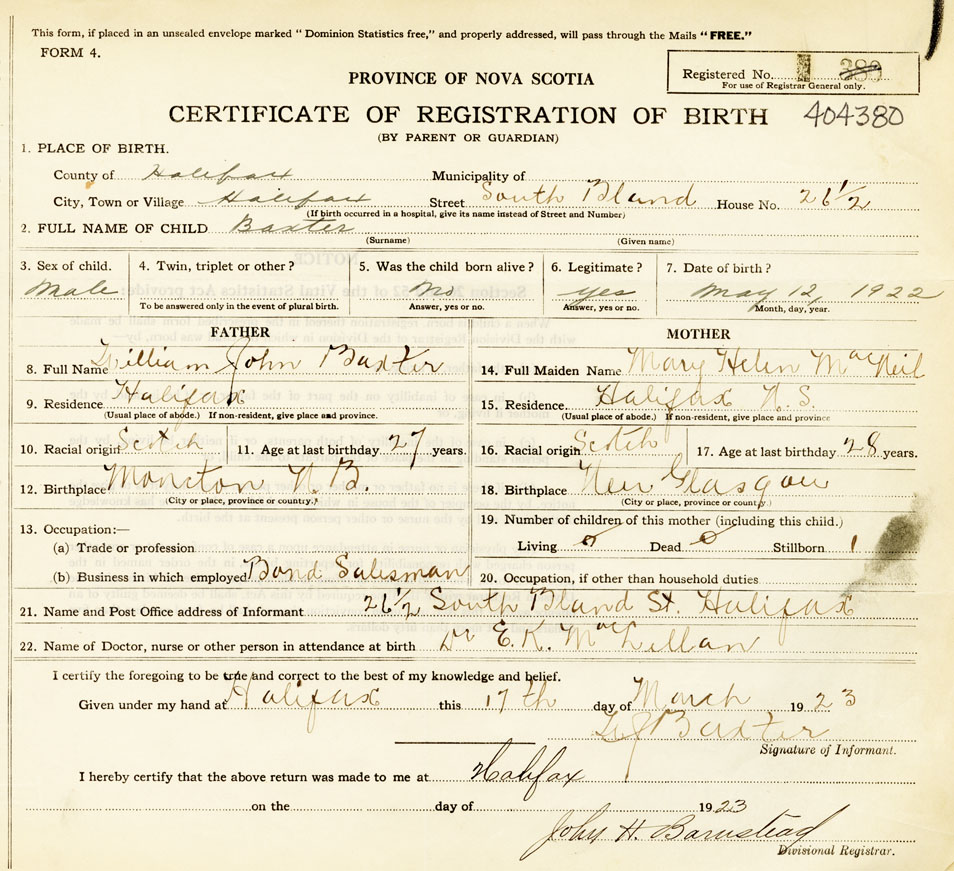 This form, if placed in an unsealed envelope marked "Dominion Statistics free," and properly addressed, will pass through the Mails "FREE."
FORM 4.
Registered No. 380
For use of Registrar General only.
PROVINCE OF NOVA SCOTIA
CERTIFICATE OF REGISTRATION OF BIRTH 404380
(BY PARENT OR GUARDIAN)
1. PLACE OF BIRTH.
County of Halifax Municipality of
City, Town or Village Halifax Street South Bland House No. 26½
(If birth occurred in a hospital, give its name instead of Street and Number)
2. FULL NAME OF CHILD Baxter
(Surname) (Given name)
3. Sex of child. 4. Twin, triplet or other? 5. Was the child born alive? 6. Legitimate? 7. Date of birth?
Male No yes May 12, 1922
To be answered only in the event of plural birth. Answer, yes or no. Answer, yes or no. Month, day, year.
FATHER MOTHER
8. Full Name William John Baxter 14. Full Maiden Name Mary Helen MacNeil
9. Residence Halifax 15. Residence Halifax N.S.
(Usual place of abode.) If non-resident, give place and province. (Usual place of abode.) If non-resident, give place and province.
10. Racial origin Scotch 11. Age at last birthday 27 years. 16. Racial origin Scotch 17. Age at last birthday 28 years.
12. Birthplace Moncton N.B. 18. Birthplace New Glasgow
(City or place, province or country.) (City or place, province or country.)
13. Occupation:— 19. Number of children of this mother (including this child.)
(a) Trade or profession Living 0 Dead 0 Stillborn 1
(b) Business in which employed Bond Salesman 20. Occupation, if other than household duties
21. Name and Post Office address of Informant 26½ South Bland St. Halifax
22. Name of Doctor, nurse or other person in attendance at birth Dr E. K. MacLellan
I certify the foregoing to be true and correct to the best of my knowledge and belief.
Given under my hand at Halifax this 17th day of March 1923
Baxter
Signature of Informant.
I hereby certify that the above return was made to me at Halifax
on the day of 1923
John H. Barnstead
Divisional Registrar.